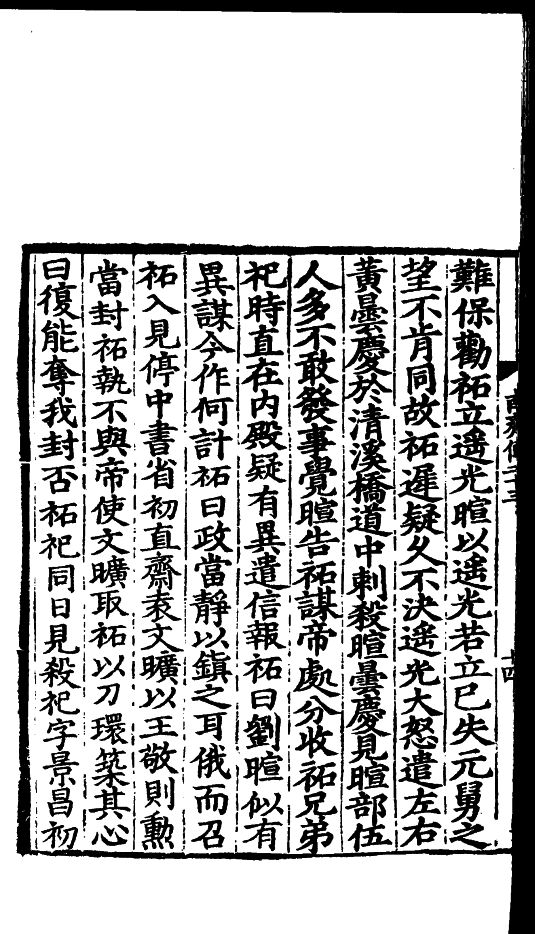 難保勸祏立遥光暄以遥光若立己失元舅之
望不肯同故祏遲疑久不決遥光大怒遣左右
黄曇慶於清溪橋道中刺殺暄曇慶見暄部伍
人多不敢發事覺暄告祏謀帝處分收祏兄弟
祀時直在内殿疑有異遣信報祏曰劉暄似有
異謀今作何計祏曰政當靜以鎮之耳俄而召
祏入見停中書省初直齋袁文曠以王敬則勳
當封祏執不與帝使文曠取祏以刀環築其心
曰復能奪我封否祏祀同日見殺祀字景昌初